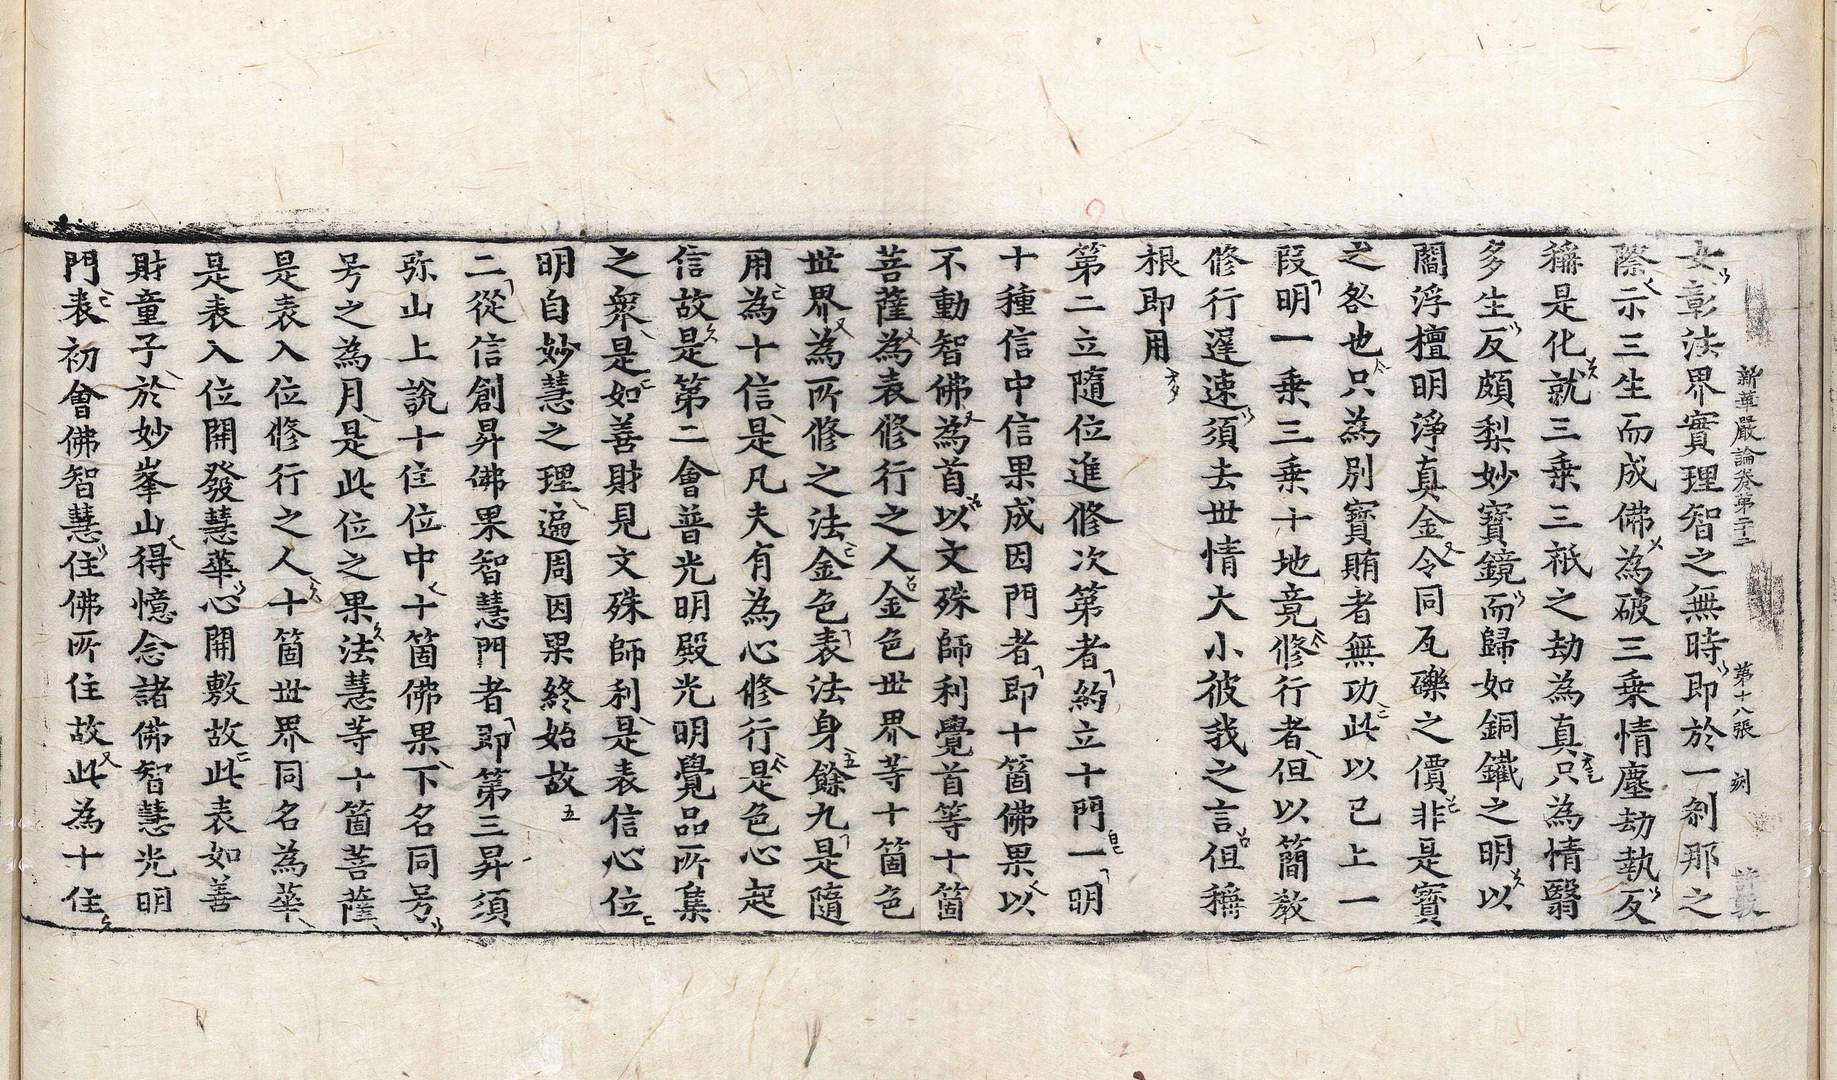 新華嚴論卷第二十二 第十八張 刻
女彰法界實理智之無時即於一剎那之
際示三生而成佛為破三乗情塵劫執反
稱是化就三乗三祇之劫為真只為情翳
多生反頗梨妙寳鏡而歸如銅鐵之明以
閻浮檀明淨真金令同瓦礫之價非是寳
之咎也只為別寳賄者無功此以已上一
叚明一乗三乗十地竟修行者但以簡教
修行遲速須去丗情大小彼我之言但稱
根即用
第二立隨位進修次第者約立十門一明
十種信中信果成因門者即十箇佛果以
不動智佛為首以文殊師利覺首等十箇
菩薩為表修行之人金色丗界等十箇色
丗界為所修之法金色表法身餘九是隨
用為十信是凡夫有為心修行是色心起
信故是第二會普光明殿光明覺品所集
之衆是如善財見文殊師利是表信心位
明自妙慧之理遍周因果終始故
二從信創昇佛果智慧門者即第三昇須
弥山上說十住位中十箇佛果下名同号
号之為月是此位之果法慧等十箇菩薩
是表入位修行之人十箇丗界同名為華
是表入位開發慧華心開敷故此表如善
財童子於妙峯山得憶念諸佛智慧光明
門表初會佛智慧住佛所住故此為十住